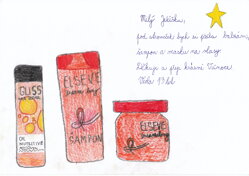 Milý Ježíšku,
pod stromeček bych si přála balzám,
šampon a masku na vlasy.
Děkuji a přeji krásné Vánoce.
Viola 13 let
GLISS
OIL
NUTRITIVE
ELSEVE
ŠAMPON
ELSEVE